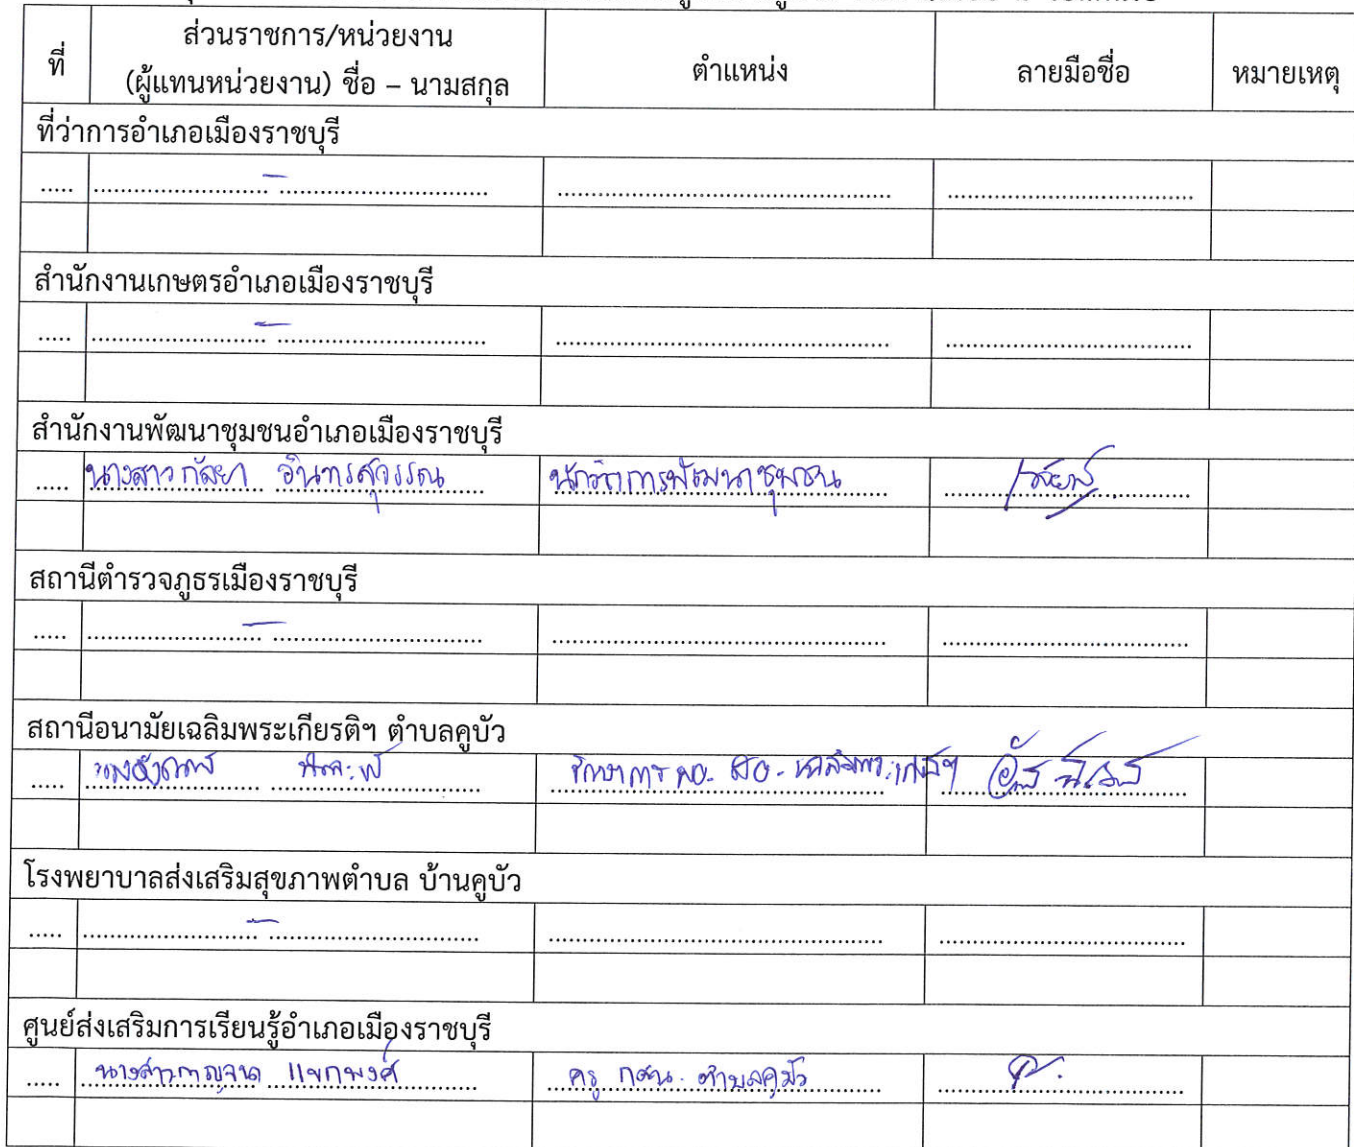 ที่
ส่วนราชการ/หน่วยงาน
(ผู้แทนหน่วยงาน) ชื่อ – นามสกุล
ตำแหน่ง
ลายมือชื่อ
หมายเหตุ
ที่ว่าการอำเภอเมืองราชบุรี
สำนักงานเกษตรอำเภอเมืองราชบุรี
สำนักงานพัฒนาชุมชนอำเภอเมืองราชบุรี
นางสาวกัลยา อินทรสุวรรณ นักวิชาการพัฒนาชุมชน
สถานีตำรวจภูธรเมืองราชบุรี
สถานีอนามัยเฉลิมพระเกียรติฯ ตำบลคูบัว
รักษาการ ผอ. สอ. เฉลิมพระเกียรติฯ
โรงพยาบาลส่งเสริมสุขภาพตำบล บ้านคูบัว
ศูนย์ส่งเสริมการเรียนรู้อำเภอเมืองราชบุรี
นางสาวกาญจนา แขกพงศ์ ครู กศน. ตำบลคูบัว